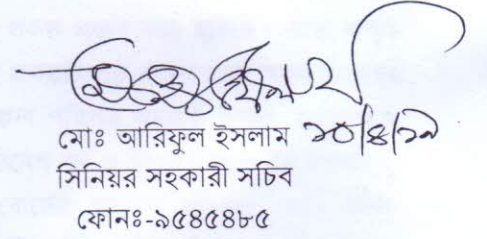 মোঃ আরিফুল ইসলাম ১০/৪/১৯
সিনিয়র সহকারী সচিব
ফোনঃ-৯৫৪৫৪৮৫